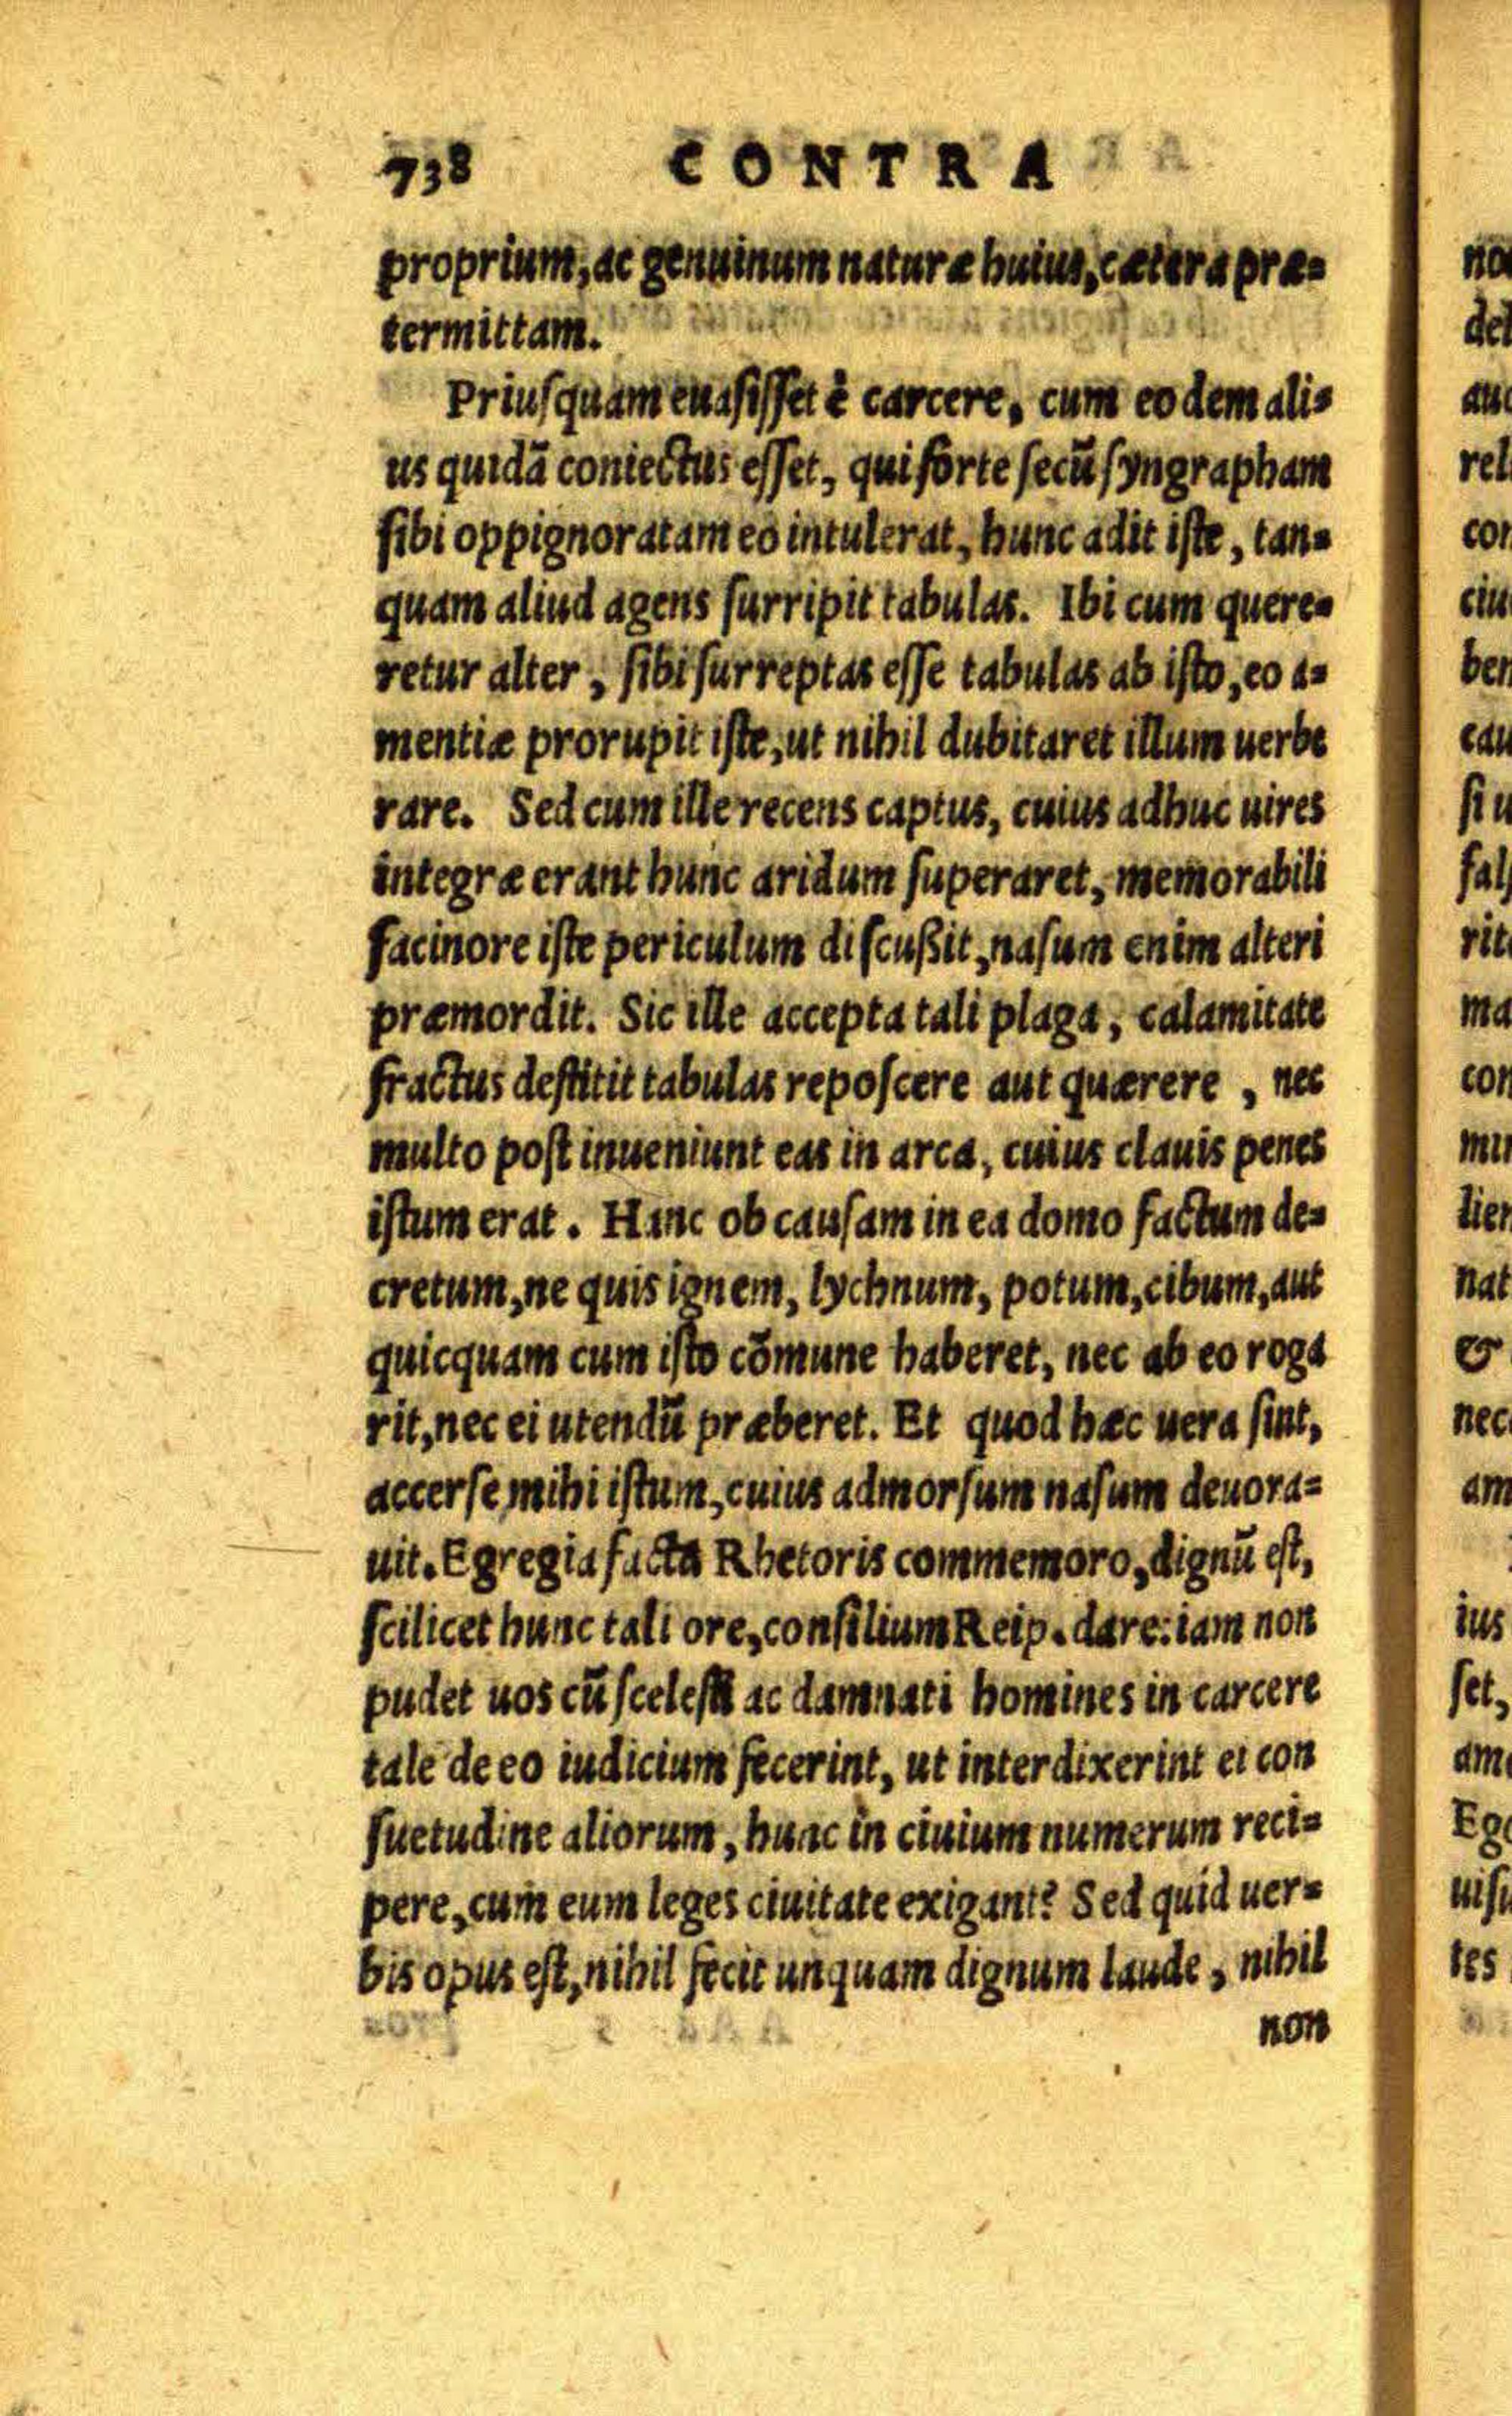 738 CONTRA
proprium, ac genuinum naturæ huius, cætera præ-
termittam.
Priusquam euasisset è carcere, cum eodem ali-
us quidã coniectus esset, qui forte secũ syngrapham
sibi oppignoratam eo intulerat, hunc adit iste, tan-
quam aliud agens surripit tabulas. Ibi cum quere-
retur alter, sibi surreptas esse tabulas ab isto, eo a-
mentiæ prorupit iste, ut nihil dubitaret illum uerbe
rare. Sed cum ille recens captus, cuius adhuc uires
integræ erant hunc aridum superaret, memorabili
facinore iste periculum discußit, nasum enim alteri
præmordit. Sic ille accepta tali plaga, calamitate
fractus destitit tabulas reposcere aut quærere, nec
multo post inueniunt eas in arca, cuius clauis penes
istum erat. Hanc ob causam in ea domo factum de-
cretum, ne quis ignem, lychnum, potum, cibum, aut
quicquam cum isto cõmune haberet, nec ab eo roga
rit, nec ei utendũ præberet. Et quod hæc uera sint,
accerse mihi istum, cuius admorsum nasum deuora-
uit. Egregia facta Rhetoris commemoro, dignũ est,
scilicet hunc tali ore, consilium Reip. dare: iam non
pudet uos cũ scelesti ac damnati homines in carcere
tale de eo iudicium fecerint, ut interdixerint ei con
suetudine aliorum, hunc in ciuium numerum reci-
pere, cum eum leges ciuitate exigant? Sed quid uer-
bis opus est, nihil fecit unquam dignum laude, nihil
non